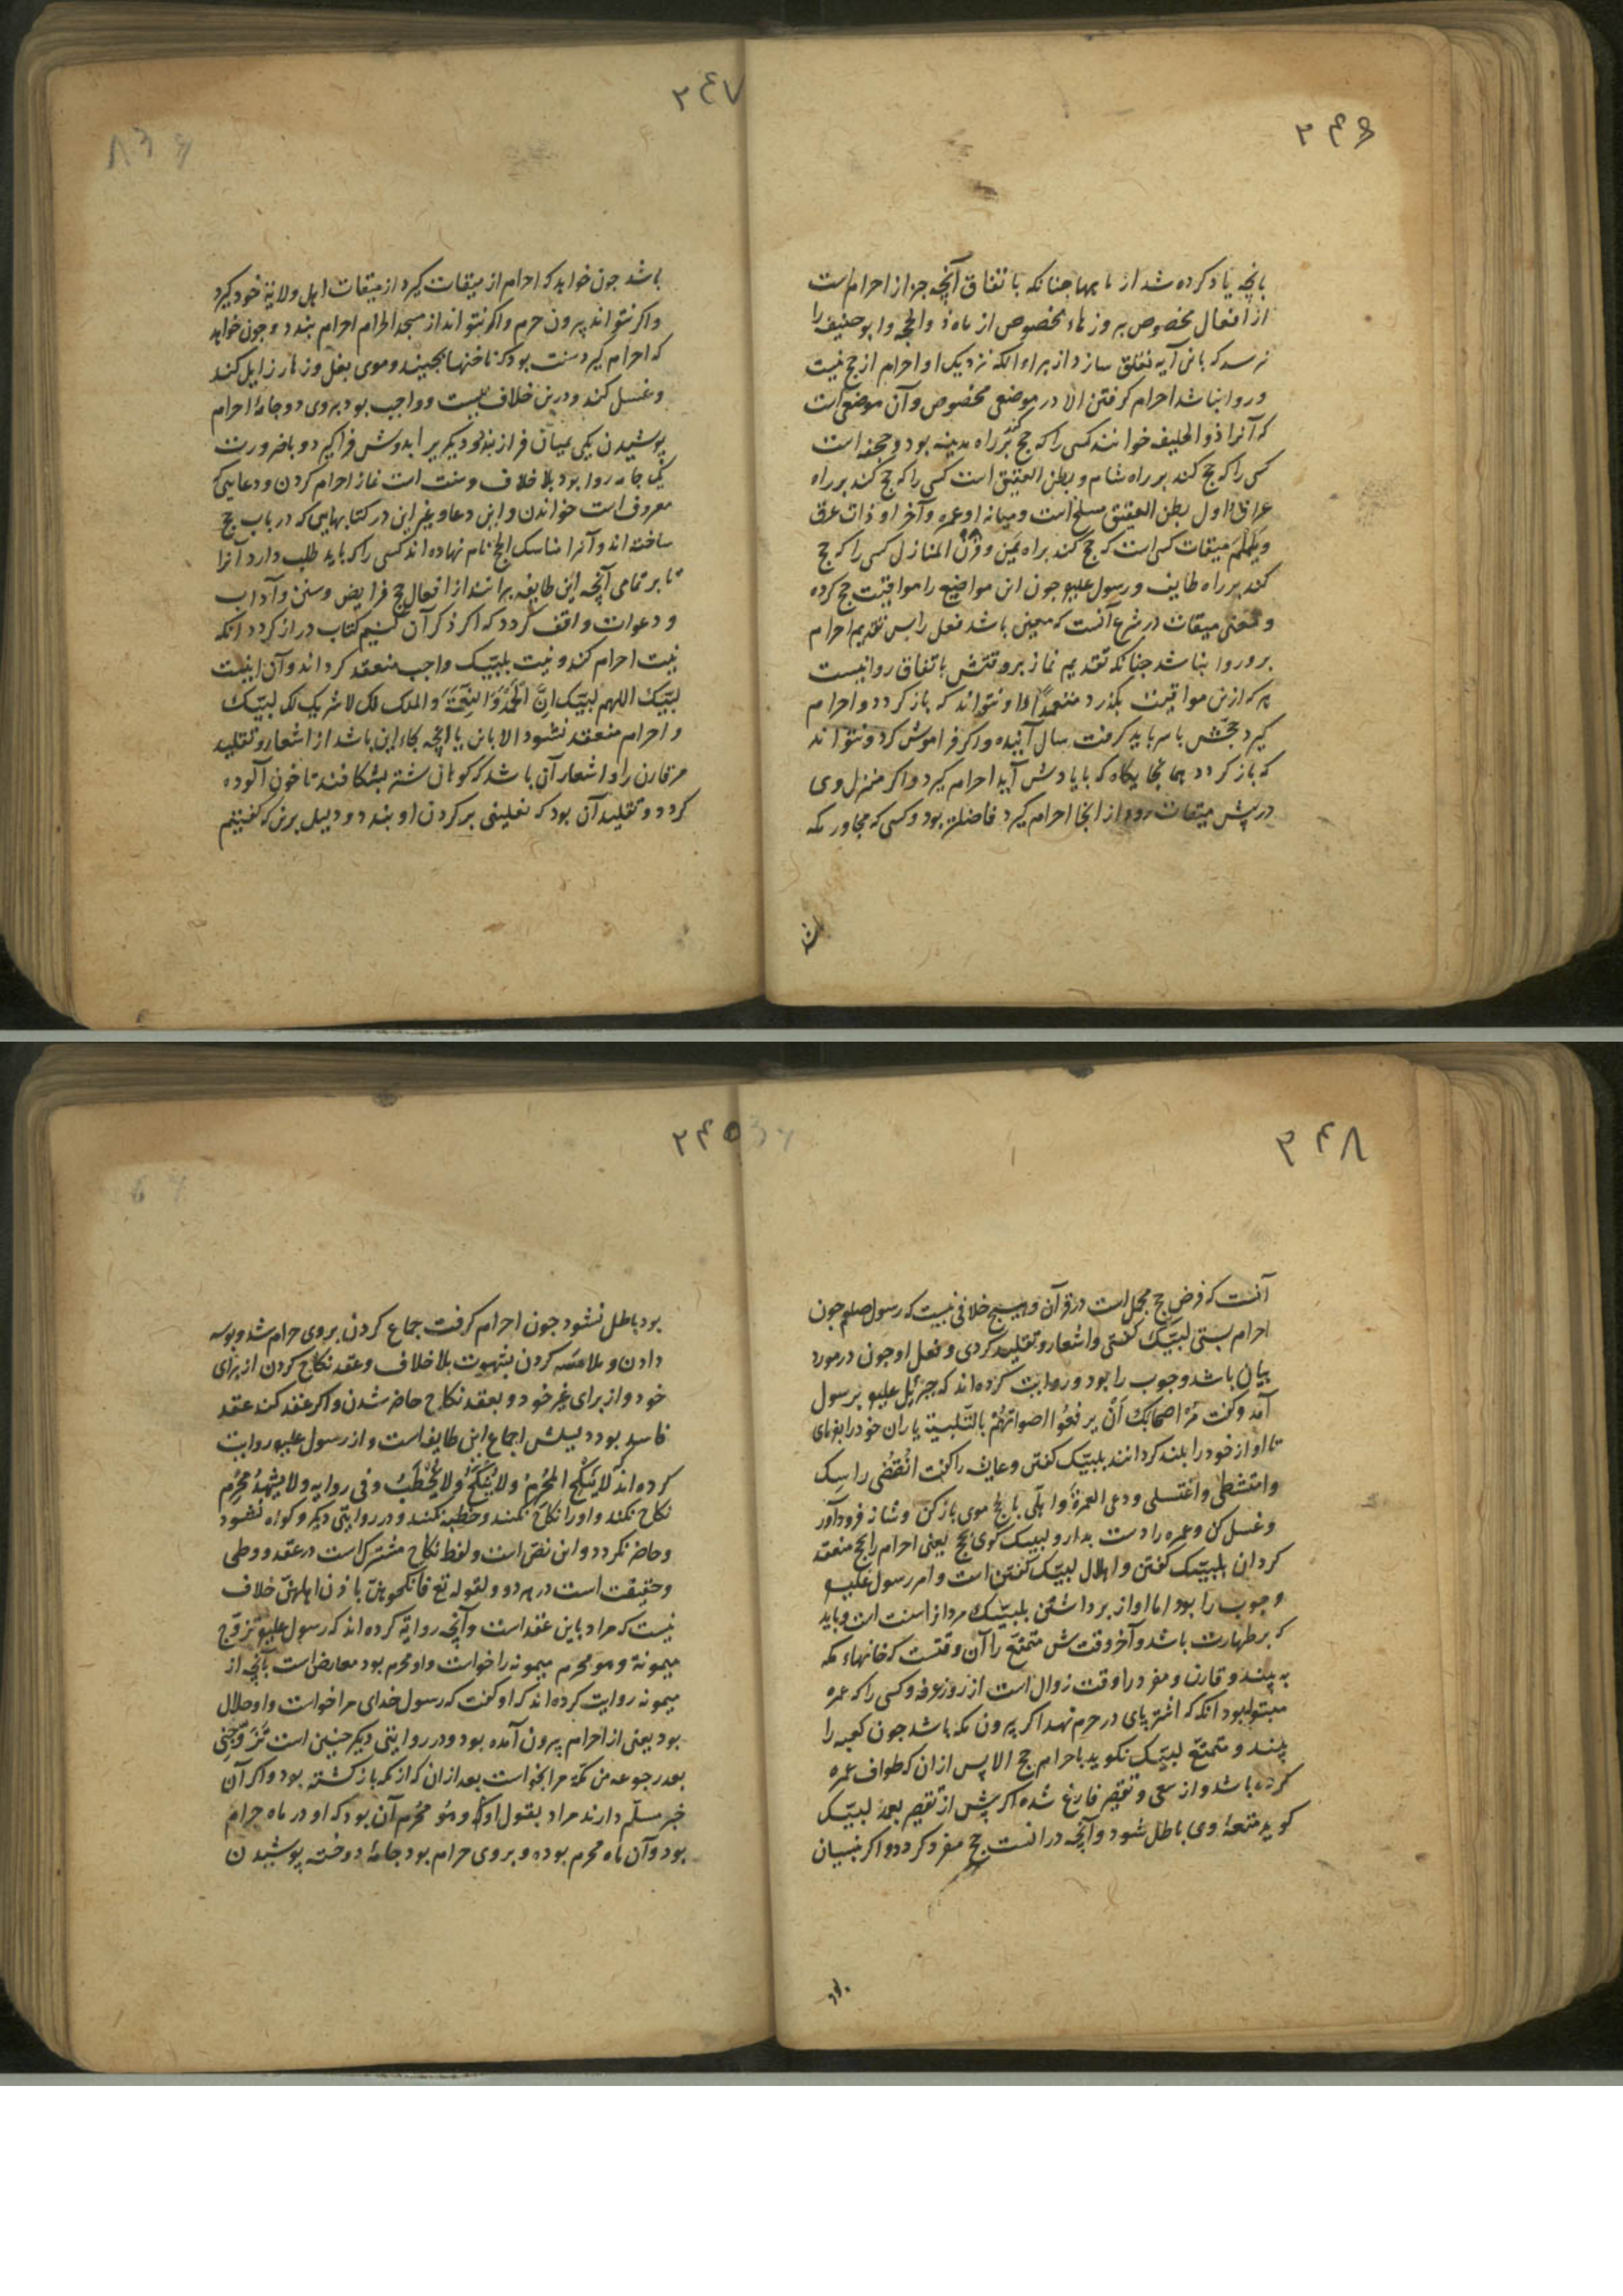 ۲۴۶
بانچه یاد کرده شد از ماهها چنانکه باتفاق آنچه جز از احرام است
از افعال مخصوص بروزهاء مخصوص از ماه ذوالحجه وابوحنیفه را
نرسد که باین آیه تعلق سازد از براء انکه نزدیک او احرام از حج نیست
و روا نباشد احرام گرفتن الا در موضعی مخصوص و آن موضعی است
که آنرا ذوالحلیفه خوانند کسی را که حج کند بر راه مدینه بود و جحفه است
کسی را که حج کند بر راه شام و بطن العقیق است کسی را که حج کند بر راه
عراق و اول بطن العقیق مسلخ است و میانه او غمره و آخر او ذات عرق
و یلملم میقات کسی است که حج کند براه یمن و قرن المنازل کسی را که حج
کند بر راه طایف و رسول علیو جون این مواضع را مواقیت حج کرده
و معنی میقات در شرع آنست که معین باشد فعل را پس تقدیم احرام
برو روا نباشد چنانکه تقدیم نماز بر وقتش باتفاق روا نیست
هرکه ازین مواقیت بگذرد متعمداً و نتواند که باز گردد و احرام
گیرد حجش با سر باید گرفت سال آینده و اگر فراموش کرد و نتواند
که باز گردد همانجایگاه که با یادش آید احرام گیرد و اگر منزل وی
در پیش میقات رود از انجا احرام گیرد فاضلتر بود و کسی که مجاور مکه
۲۴۷
باشد جون خواهد که احرام از میقات گیرد از میقات اهل ولایة خود گیرد
و اگر نتواند بیرون حرم و اگر نتواند از مسجد الحرام احرام بندد و جون خواهد
که احرام گیرد سنت بود که ناخنها بچیند و موی بغل و زهار زایل کند
و غسل کند و درین خلاف نیست و واجب بود بروی دو جامهٔ احرام
پوشیدن یکی بمیان فراز بندد و دیگر بر ابدوش فرا گیرد و باضرورت
یک جامه روا بود بلا خلاف و سنت است نماز احرام کردن و دعایی که
معروف است خواندن و این دعا و غیر این در کتابهایی که در باب حج
ساخته اند و آنرا مناسک الحج نام نهاده اند کسی را که باید طلب دارد آنرا
تا بر تمامی آنچه این طایفه برانند از افعال حج فرایض و سنن و آداب
و دعوات واقف گردد که اگر ذکر آن کنیم کتاب دراز گردد انکه
نیت احرام کند و نیت بلبیک واجب منعقد گرداند و آن اینست
لبیک اللهم لبیک ان الحمد والنعمة والملک لک لا شریک لک لبیک
و احرام منعقد نشود الا باین یا انچه بجاء این باشد از اشعار و تقلید
مر قارن را و اشعار آن باشد که کوهان شتر بشکافند تا خون آلوده
گردد و تقلید آن بود که نعلینی بر گردن او بندد و دلیل برین که گفتیم
۲۴۸
آنست که فرض حج مجمل است در قرآن و هیچ خلافی نیست که رسول صلعم جون
احرام بستی لبیک گفتی و اشعار و تقلید کردی و فعل او جون در مورد
بیان باشد وجوب را بود و روایت کرده اند که جبرئیل علیو بر رسول
آمد و گفت مر اصحابک ان یرفعوا اصواتهم بالتلبیة یاران خود را بفرمای
تا اواز خود را بلند گردانند بلبیک گفتن و عایشه را گفت انقضی راسک
وامتشطی واغتسلی ودعی العمرة واهلی بالحج موی باز کن و شانه فرود آور
و غسل کن و عمره را دست بدار و لبیک گوی بحج یعنی احرام را بحج منعقد
گردان بلبیک گفتن و اهلال لبیک گفتن است و امر رسول علیو
وجوب را بود اما اواز برداشتن بلبیک مرد از سنت است و باید
که بر طهارت باشد و آخر وقتش متمتع را آن وقتست که خانهاء مکه
به بیند و قارن و مفرد را وقت زوال است از روز عرفه و کسی را که عمره
مبتوله بود انکه که اشتر پای در حرم نهد اگر بیرون مکه باشد جون کعبه را
بیند و متمتع لبیک نگوید باحرام حج الا پس از ان که طواف عمره
کرده باشد و از سعی و تقصیر فارغ شده اگر پیش از تقصیر بعمد لبیک
گوید متعهٔ وی باطل شود و آنچه در انست حج مفرد گردد و اگر بنسیان
۲۴۵
بود باطل نشود جون احرام گرفت جماع کردن بروی حرام شد و بوسه
دادن و ملامسه کردن بشهوت بلا خلاف و عقد نکاح کردن از برای
خود و از برای غیر خود و بعقد نکاح حاضر شدن و اگر عقد کند عقد
فاسد بود دلیلش اجماع این طایفه است و از رسول علیو روایت
کرده اند لا ینکح المحرم ولا ینکح ولا یخطب وفی روایه ولا یشهد محرم
نکاح نکند و او را نکاح نکنند و خطبه نکند و در روایتی دیگر و گواه نشود
و حاضر نگردد و این نص است و لفظ نکاح مشترک است در عقد و وطی
و حقیقت است در هر دو و لقوله تع فانکحوهن باذن اهلهن خلاف
نیست که مراد باین عقد است و آنچه روایة کرده اند که رسول علیو تزوج
میمونة وهو محرم میمونه را خواست و او محرم بود معارض است بآنچه از
میمونه روایت کرده اند که او گفت که رسول خدای مرا خواست و او حلال
بود یعنی از احرام بیرون آمده بود و در روایتی دیگر چنین است تزوجنی
بعد رجوعه من مکة مرا بخواست بعد از ان که از مکه باز گشته بود و اگر آن
خبر مسلم دارند مراد بقول او که وهو محرم آن بود که او در ماه حرام
بود و آن ماه محرم بوده و بروی حرام بود جامهٔ دوخته پوشیدن